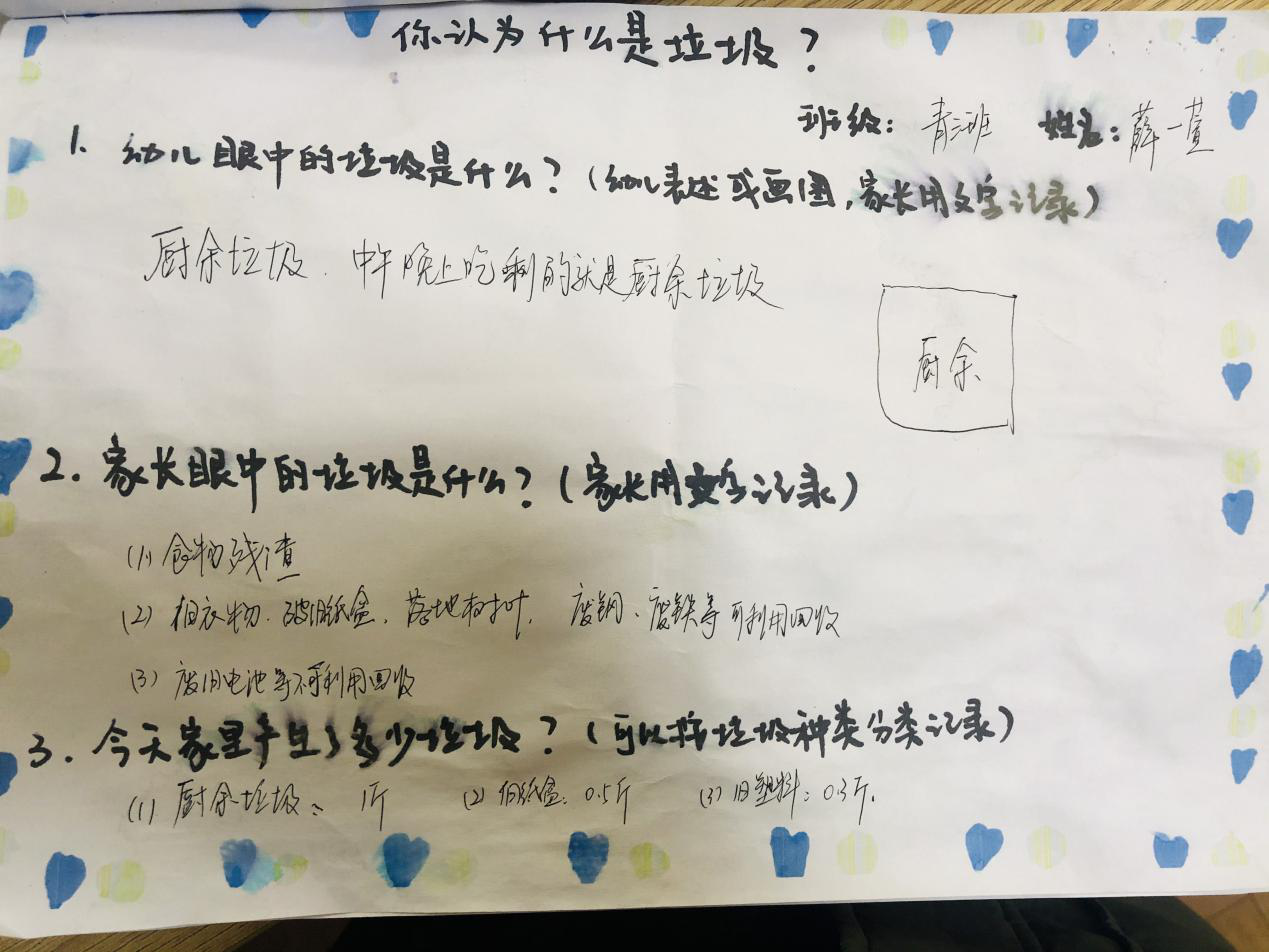 你认为什么是垃圾？
班级：青三班 姓名：薛一萱
1. 幼儿眼中的垃圾是什么？（幼儿表述或画图，家长用文字记录）
厨余垃圾．中午晚上吃剩的就是厨余垃圾
厨余
2. 家长眼中的垃圾是什么？（家长用文字记录）
(1) 食物残渣
(2) 旧衣物．破旧纸盒．落地树叶．废钢、废铁等可利用回收
(3) 废旧电池等不可利用回收
3. 今天家里产生了多少垃圾？（可以按垃圾种类分类记录）
(1) 厨余垃圾： 1斤 (2) 旧纸盒：0.5斤 (3) 旧塑料：0.3斤．